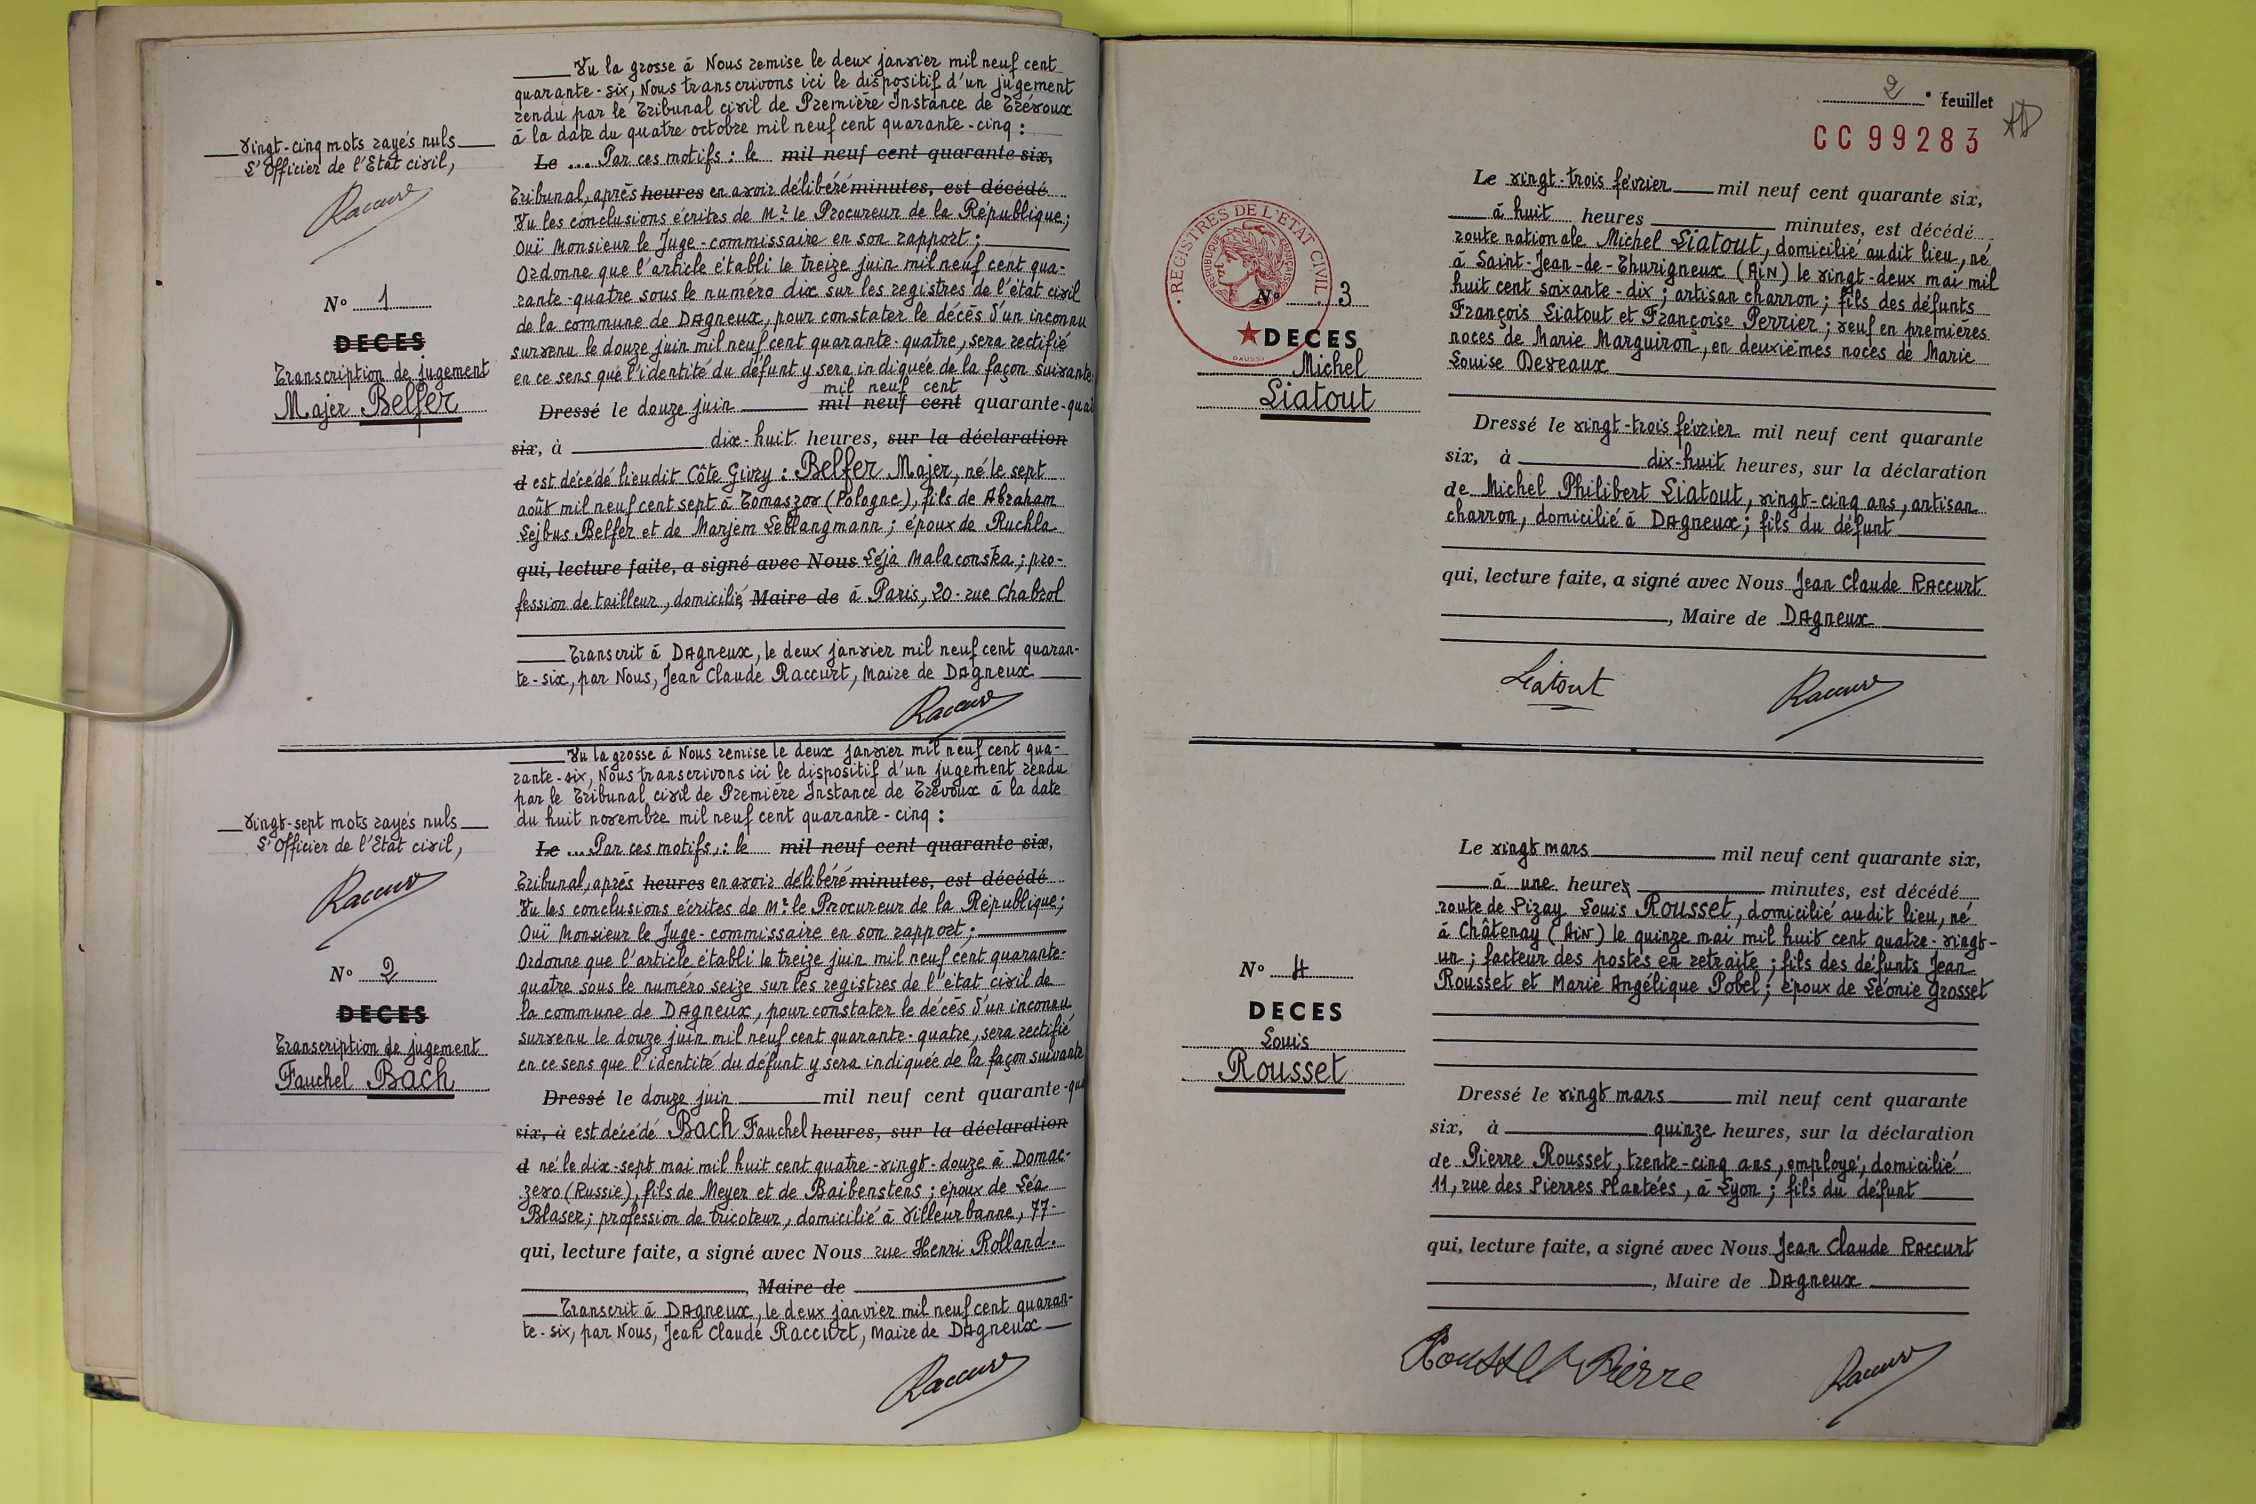 vingt-cinq mots rayés nuls
L'Officier de l'Etat civil,
Raccurt
N° 1
DECES
Transcription de jugement
Majer Belfer
Vu la grosse à Nous remise le deux janvier mil neuf cent
quarante-six, Nous transcrivons ici le dispositif d'un jugement
rendu par le Tribunal civil de Première Instance de Trévoux
à la date du quatre octobre mil neuf cent quarante-cinq :
Le ... Par ces motifs : le mil neuf cent quarante six,
Tribunal, après heures en avoir délibéré minutes, est décédé
Vu les conclusions écrites de Mr le Procureur de la République ;
Ouï Monsieur le Juge-commissaire en son rapport ;
Ordonne que l'article établi le treize juin mil neuf cent qua-
rante-quatre sous le numéro dix sur les registres de l'état civil
de la commune de Dagneux, pour constater le décès d'un inconnu
survenu le douze juin mil neuf cent quarante-quatre, sera rectifié
en ce sens que l'identité du défunt y sera indiquée de la façon suivante
mil neuf cent
Dressé le douze juin mil neuf cent quarante-qua
six, à dix-huit heures, sur la déclaration
d est décédé lieudit Côte Givry : Belfer Majer, né le sept
août mil neuf cent sept à Tomaszov (Pologne), fils de Abraham
Lejbus Belfer et de Marjem Leblangmann ; époux de Ruchla
qui, lecture faite, a signé avec Nous Léja Malaconska ; pro-
fession de tailleur, domicilié Maire de à Paris, 20. rue Chabrol
Transcrit à Dagneux, le deux janvier mil neuf cent quaran-
te-six, par Nous, Jean Claude Raccurt, Maire de Dagneux
Raccurt
vingt-sept mots rayés nuls
L'Officier de l'Etat civil,
Raccurt
N° 2
DECES
Transcription de jugement
Fauchel Bach
Vu la grosse à Nous remise le deux janvier mil neuf cent qua-
rante-six, Nous transcrivons ici le dispositif d'un jugement rendu
par le Tribunal civil de Première Instance de Trévoux à la date
du huit novembre mil neuf cent quarante-cinq :
Le ... Par ces motifs, : le mil neuf cent quarante six,
Tribunal, après heures en avoir délibéré minutes, est décédé
Vu les conclusions écrites de Mr le Procureur de la République ;
Ouï Monsieur le Juge-commissaire en son rapport ;
Ordonne que l'article établi le treize juin mil neuf cent quarante-
quatre sous le numéro seize sur les registres de l'état civil de
la commune de Dagneux, pour constater le décès d'un inconnu
survenu le douze juin mil neuf cent quarante-quatre, sera rectifié
en ce sens que l'identité du défunt y sera indiquée de la façon suivante
Dressé le douze juin mil neuf cent quarante-qu
six, à est décédé Bach Fauchel heures, sur la déclaration
d né le dix-sept mai mil huit cent quatre-vingt-douze à Domac-
zevo (Russie), fils de Meyer et de Baibenstens ; époux de Léa
Blaser ; profession de tricoteur, domicilié à Villeurbanne, 77-
qui, lecture faite, a signé avec Nous rue Henri Rolland.
, Maire de
Transcrit à Dagneux, le deux janvier mil neuf cent quaran-
te-six, par Nous, Jean Claude Raccurt, Maire de Dagneux
Raccurt
2e feuillet
CC 99283
REGISTRES DE L'ETAT CIVIL
REPUBLIQUE FRANÇAISE
DAUSSY
N° 3
DECES
Michel
Liatout
Le vingt-trois février mil neuf cent quarante six,
à huit heures minutes, est décédé,
route nationale Michel Liatout, domicilié audit lieu, né
à Saint-Jean-de-Thurigneux (Ain) le vingt-deux mai mil
huit cent soixante-dix ; artisan charron ; fils des défunts
François Liatout et Françoise Perrier ; veuf en premières
noces de Marie Marguiron, en deuxièmes noces de Marie
Louise Deveaux
Dressé le vingt-trois février mil neuf cent quarante
six, à dix-huit heures, sur la déclaration
de Michel Philibert Liatout, vingt-cinq ans, artisan
charron, domicilié à Dagneux ; fils du défunt
qui, lecture faite, a signé avec Nous Jean Claude Raccurt
, Maire de Dagneux
Liatout Raccurt
N° 4
DECES
Louis
Rousset
Le vingt mars mil neuf cent quarante six,
à une heures minutes, est décédé
route de Pizay Louis Rousset, domicilié audit lieu, né
à Châtenay (Ain) le quinze mai mil huit cent quatre-vingt-
un ; facteur des postes en retraite ; fils des défunts Jean
Rousset et Marie Angélique Pobel ; époux de Léonie Grosset
Dressé le vingt mars mil neuf cent quarante
six, à quinze heures, sur la déclaration
de Pierre Rousset, trente-cinq ans, employé, domicilié
11, rue des Pierres Plantées, à Lyon ; fils du défunt
qui, lecture faite, a signé avec Nous Jean Claude Raccurt
, Maire de Dagneux
Rousset Pierre Raccurt